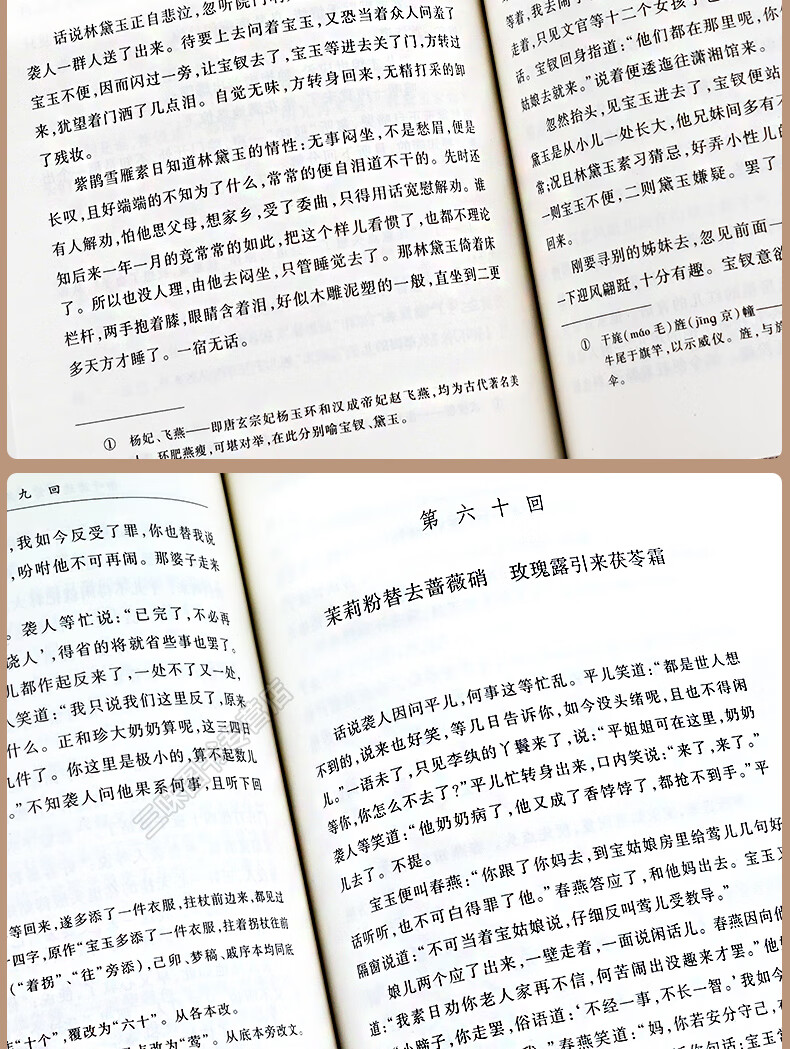 话说林黛玉正自悲泣,忽听院门
袭人一群人送了出来。待要上去问着宝玉,又恐当着众人问羞了
宝玉不便,因而闪过一旁,让宝钗去了,宝玉等进去关了门,方转过
来,犹望着门洒了几点泪。自觉无味,方转身回来,无精打采的卸
了残妆。
紫鹃雪雁素日知道林黛玉的情性:无事闷坐,不是愁眉,便是
长叹,且好端端的不知为了什么,常常的便自泪道不干的。先时还
有人解劝,怕他思父母,想家乡,受了委曲,只得用话宽慰解劝。谁
知后来一年一月的竟常常的如此,把这个样儿看惯了,也都不理论
了。所以也没人理,由他去闷坐,只管睡觉去了。那林黛玉倚着床
栏杆,两手抱着膝,眼睛含着泪,好似木雕泥塑的一般,直坐到二更
多天方才睡了。一宿无话。
① 杨妃、飞燕——即唐玄宗妃杨玉环和汉成帝妃赵飞燕,均为古代著名美
环肥燕瘦,可堪对举,在此分别喻宝钗、黛玉。
等着,我去闹
走着,只见文官等十二个女孩子也
话。宝钗回身指道:“他们都在那里呢,你
姑娘去就来。”说着便逶迤往潇湘馆来。
忽然抬头,见宝玉进去了,宝钗便站
黛玉是从小儿一处长大,他兄妹间多有不
常;况且林黛玉素习猜忌,好弄小性儿的
一则宝玉不便,二则黛玉嫌疑。罢了
回来。
刚要寻别的姊妹去,忽见前面一
一下迎风翩跹,十分有趣。宝钗意欲
① 干旄(máo 毛)旌(jīng 京)幢——
牛尾于旗竿,以示威仪。旌,与旄
伞。
九 回
,我如今反受了罪,你也替我说
,吩咐他不可再闹。那婆子走来
。袭人等忙说:“已完了,不必再
饶人’,得省的将就省些事也罢了。
儿都作起反来了,一处不了又一处,
人笑道:“我只说我们这里反了,原来
什么。正和珍大奶奶算呢,这三四日
几件了。你这里是极小的,算不起数儿
。”不知袭人问他果系何事,且听下回
等回来,遂多添了一件衣服,拄杖前边来,都见过
十四字,原作“宝玉多添了一件衣服,拄着拐杖往前
(“着拐”、“往”旁添),己卯、梦稿、戚序本均同底
作“十个”,覆改为“六十”。从各本改。
点改为“莺”。从底本旁改文。
第六十回
茉莉粉替去蔷薇硝 玫瑰露引来茯苓霜
话说袭人因问平儿,何事这等忙乱。平儿笑道:“都是世人想
不到的,说来也好笑,等几日告诉你,如今没头绪呢,且也不得闲
儿。”一语未了,只见李纨的丫鬟来了,说:“平姐姐可在这里,奶奶
等你,你怎么不去了?”平儿忙转身出来,口内笑说:“来了,来了。”
袭人等笑道:“他奶奶病了,他又成了香饽饽了,都抢不到手。”平
儿去了。不提。
宝玉便叫春燕:“你跟了你妈去,到宝姑娘房里给莺儿几句好
话听听,也不可白得罪了他。”春燕答应了,和他妈出去。宝玉又
隔窗说道:“不可当着宝姑娘说,仔细反叫莺儿受教导。”
娘儿两个应了出来,一壁走着,一面说闲话儿。春燕因向他
道:“我素日劝你老人家再不信,何苦闹出没趣来才罢。”他
“小蹄子,你走罢,俗语道:‘不经一事,不长一智。’我如今
春燕笑道:“妈,你若安分守己,